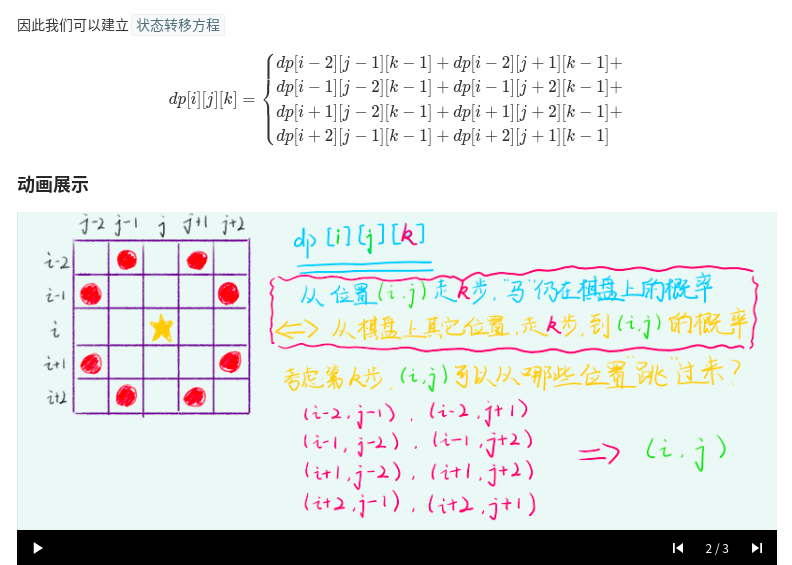 因此我们可以建立 状态转移方程
dp[i][j][k] = { dp[i − 2][j − 1][k − 1] + dp[i − 2][j + 1][k − 1]+
dp[i − 1][j − 2][k − 1] + dp[i − 1][j + 2][k − 1]+
dp[i + 1][j − 2][k − 1] + dp[i + 1][j + 2][k − 1]+
dp[i + 2][j − 1][k − 1] + dp[i + 2][j + 1][k − 1]
动画展示
j-2 j-1 j j+1 j+2
i-2
i-1
i
i+1
i+2
dp[i][j][k]
从位置(i,j)走k步,"马"仍在棋盘上的概率
<=> 从棋盘上其它位置,走k步,到(i,j)的概率
考虑第k步,(i,j)可以从哪些位置"跳"过来?
(i-2,j-1), (i-2,j+1)
(i-1,j-2), (i-1,j+2)
(i+1,j-2), (i+1,j+2)
(i+2,j-1), (i+2,j+1)
=> (i,j)
2 / 3